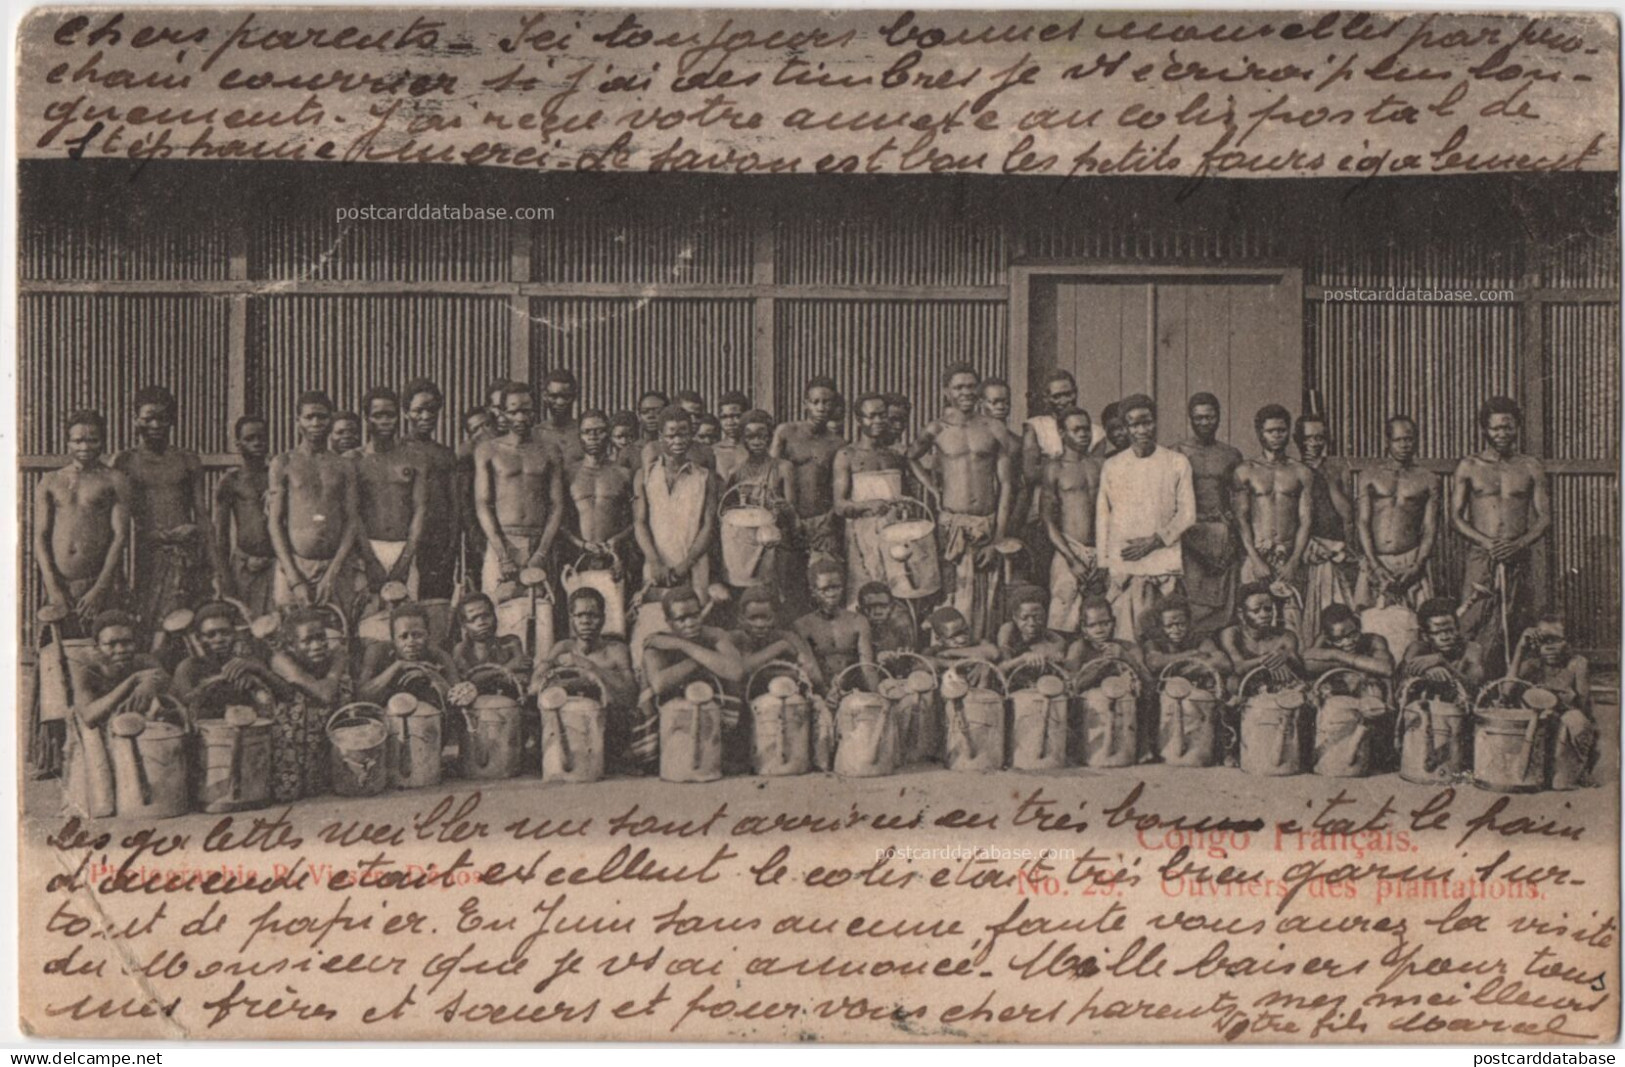 chers parents - Ici toujours bonnes nouvelles par pro-
chain courrier si j'ai des timbres je vs écrirai plus lon-
guements - J'ai reçu votre annexe au colis postal de
Stéphanie merci - Le savon est bon les petits fours également
postcarddatabase.com
postcarddatabase.com
les galettes meiller nu sont arrivées en très bonne état le pain
Congo Français.
postcarddatabase.com
d'amende était excellent le colis était très bien garni sur-
Photographie R. Visser, Dépos
No. 29. Ouvriers des plantations.
tout de papier. En Juin sans aucune faute vous aurez la visite
du Monsieur que je vs ai annoncé - Mille baisers pour tous
mes frères et sœurs et pour vous chers parents mes meilleurs
Votre fils Marcel
www.delcampe.net
postcarddatabase